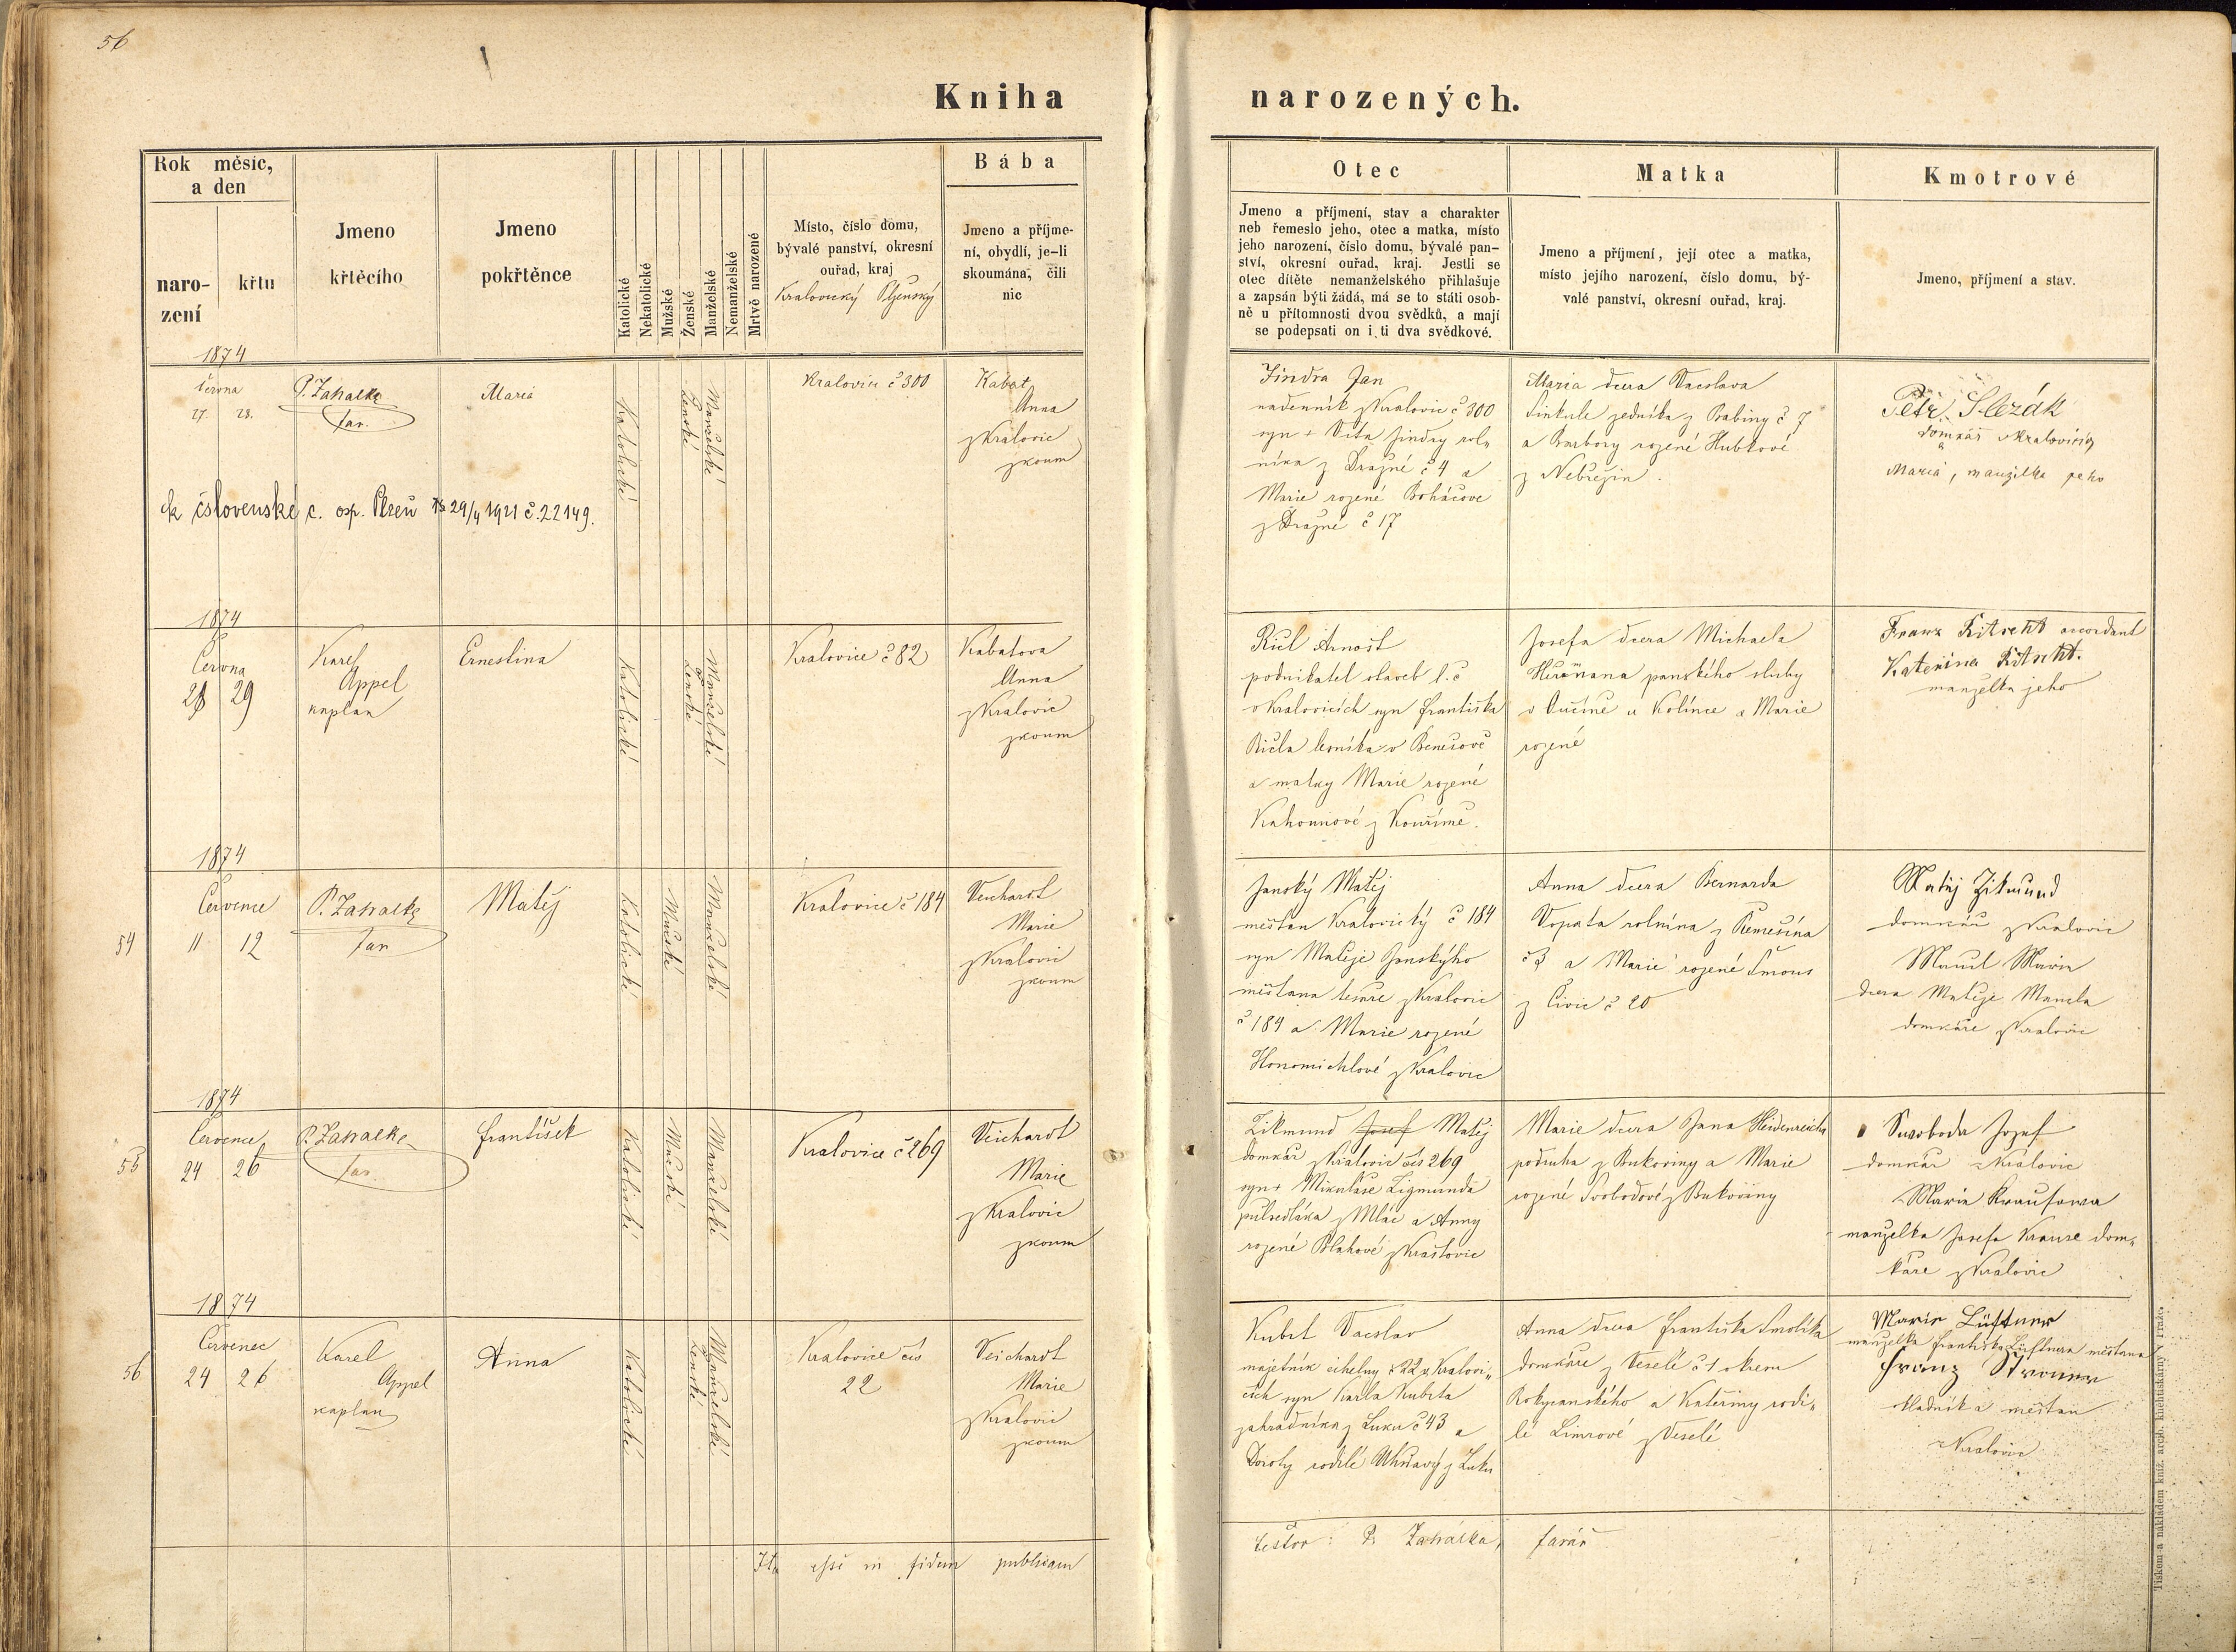 56
Kniha narozených.
Rok měsíc, a den
naro-
zení
křtu
Jmeno
křtěcího
Jmeno
pokřtěnce
Katolické
Nekatolické
Mužské
Ženské
Manželské
Nemanželské
Mrtvě narozené
Místo, číslo domu,
bývalé panství, okresní
ouřad, kraj
Kralovický Plzenský
Bába
Jmeno a příjme-
ní, obydlí, je-li
skoumána, čili
nic
Otec
Jmeno a příjmení, stav a charakter
neb řemeslo jeho, otec a matka, místo
jeho narození, číslo domu, bývalé pan-
ství, okresní ouřad, kraj. Jestli se
otec dítěte nemanželského přihlašuje
a zapsán býti žádá, má se to státi osob-
ně u přítomnosti dvou svědků, a mají
se podepsati on i ti dva svědkové.
Matka
Jmeno a příjmení, její otec a matka,
místo jejího narození, číslo domu, bý-
valé panství, okresní ouřad, kraj.
Kmotrové
Jmeno, příjmení a stav.
1874
Června
27. 28.
P. Zahalka
far.
Maria
Katolické
Ženské
Manželské
Kralovice č 300
Kabat
Anna
z Kralovic
zkoum
Jindra Jan
nadenník z Kralovic č 300
syn + Víta Jindry rol„
níka z Dražně č 4 a
Marie rozené Boháčove
z Dražně č 17
Maria dcera Vacslava
Sinkule zedníka z Babiny č 7
a Barbory rozené Hubkové
z Nebřezin.
Petr Slezák
domkář v Kralovicích
a
Maria, manželka jeho
k čslovenské c. osp. Plzeň 29/4 1921 č. 22149.
1874
Června
28 29
Karel
Appel
kaplan
Ernestina
Katolické
Ženské
Manželské
Kralovice č 82
Kabatova
Anna
z Kralovic
zkoum
Arnošt
podnikatel staveb
v Kralovicích syn Františka
v Benešově
a matky Marie rozené
z Kouřimě.
Josefa dcera Michaela
Heřmana panského sluhy
u Kolínce a Marie
rozené
Franz accordant
Kateřina
manželka jeho
1874
54
Července
11 12
P. Zahalka
far
Matěj
Katolické
Mužské
Manželské
Kralovice č 184
Veichardt
Marie
z Kralovic
zkoum
Janský Matěj
měštan Kralovický č 184
syn Matěje Janskýho
měštana tesaře z Kralovic
č 184 a Marie rozené
Honomichlové z Kralovic
Anna dcera Bernarda
Vopata rolnína z Řemešína
č 3 a Marie rozené Šmous
z Čivic č 20
Matěj Zikmund
domkář z Kralovic
Mandl Marie
dcera Matěje Mandla
domkáře z Kralovic
1874
55
Července
24 26
P. Zahalka
far
František
Katolické
Mužské
Manželské
Kralovice č 269
Veichardt
Marie
z Kralovic
zkoum
Zikmund Josef Matěj
domkář z Kralovic čís 269
syn + Mikuláše Zigmunda
půlsedláka z Mlác a Anny
rozené Blahové z Hrašťovic
Marie dcera Jana Heidenreicha
podruha z Bukoviny a Marie
rozené Svobodové z Bukoviny
Swoboda Jozef
domkář z Kralovic
Maria Krausowa
manželka Josefa Krause dom„
káře z Kralovic
1874
56
Červenec
24 26
Karel
Appel
kaplan
Anna
Katolické
Ženské
Manželské
Kralovice čís
22
Veichardt
Marie
z Kralovic
zkoum
Kubrt Vacslav
majetník cihelny č 22 v Kralovi„
cích syn Karla Kubrta
zahradníka z Luku č 43 a
Doroty rodilé z Luku
Anna dcera Františka Smolíka
domkáře z Veselé č 1 okresu
Rokycanského a Kateřiny rodi„
lé Limrové z Veselé
Marie Lüftner
manželka Františka Lüftnera měštana
Franz Stroner
sladník a měštan
z Kralovic
Ita esse in fidem publicam
testor: P. Zahálka, farář
Tiskem a nákladem kníž. arcib. knihtiskárny v Praze.